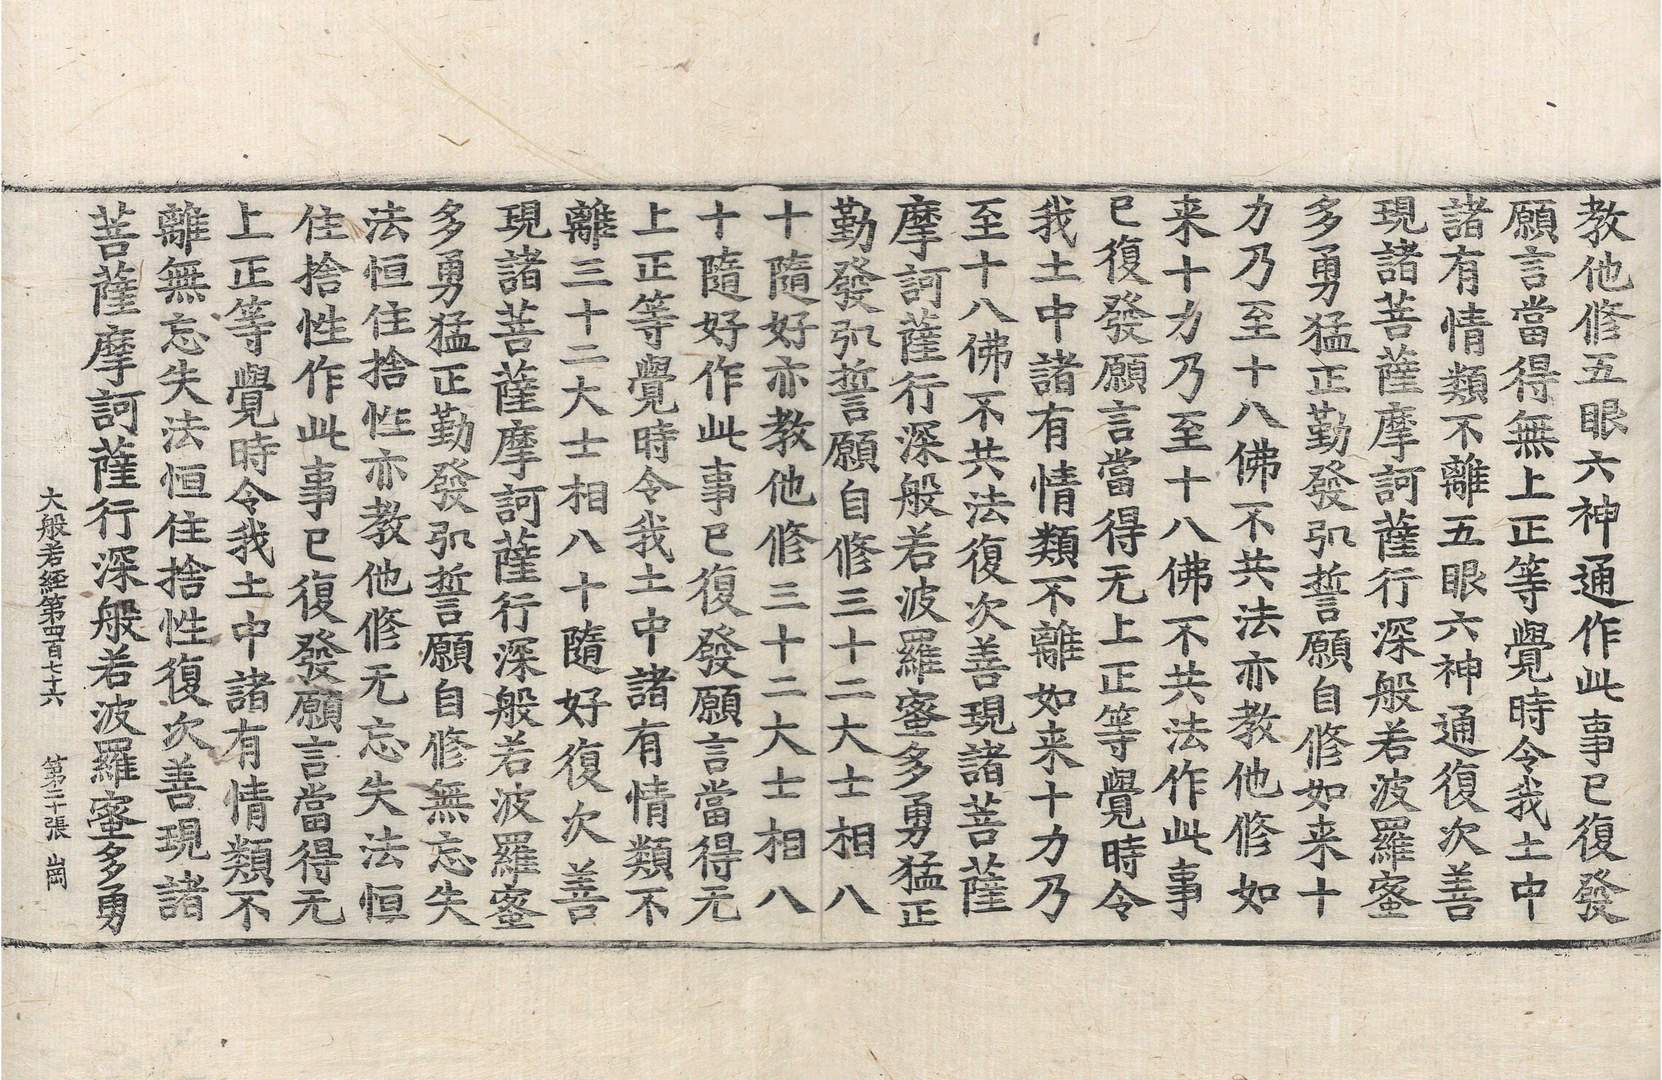 教他修五眼六神通作此事已復發
願言當得無上正等覺時令我土中
諸有情類不離五眼六神通復次善
現諸菩薩摩訶薩行深般若波羅蜜
多勇猛正勤發弘誓願自修如来十
力乃至十八佛不共法亦教他修如
来十力乃至十八佛不共法作此事
已復發願言當得无上正等覺時令
我土中諸有情類不離如来十力乃
至十八佛不共法復次善現諸菩薩
摩訶薩行深般若波羅蜜多勇猛正
勤發弘誓願自修三十二大士相八
十隨好亦教他修三十二大士相八
十隨好作此事已復發願言當得无
上正等覺時令我土中諸有情類不
離三十二大士相八十隨好復次善
現諸菩薩摩訶薩行深般若波羅蜜
多勇猛正勤發弘誓願自修無忘失
法恒住捨性亦教他修无忘失法恒
住捨性作此事已復發願言當得无
上正等覺時令我土中諸有情類不
離無忘失法恒住捨性復次善現諸
菩薩摩訶薩行深般若波羅蜜多勇
大般若經第四百七十六 第二十張 崗